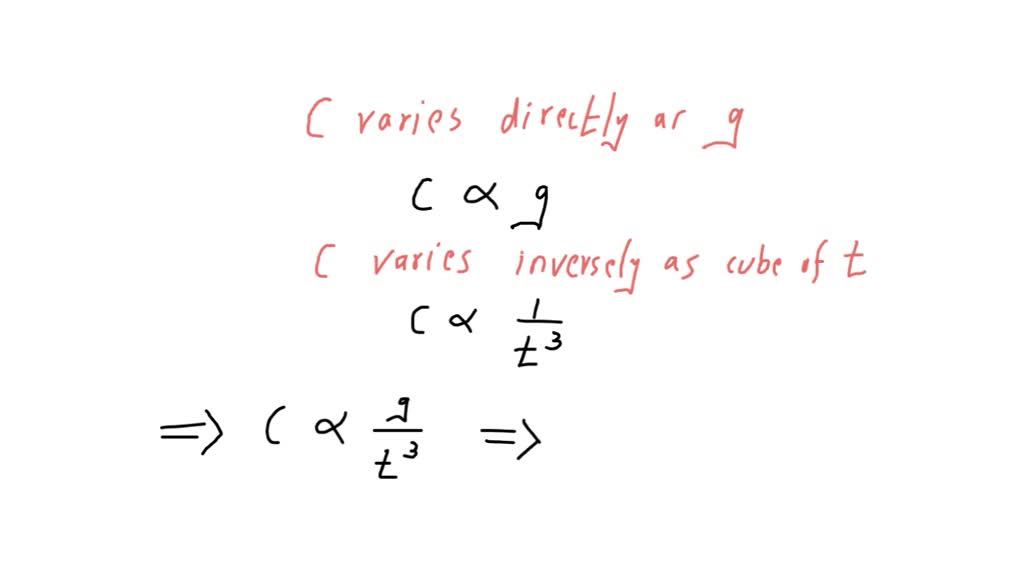 C varies directly as g
C ∝ g
C varies inversely as cube of t
C ∝ 1/t³
⇒ C ∝ g/t³ ⇒